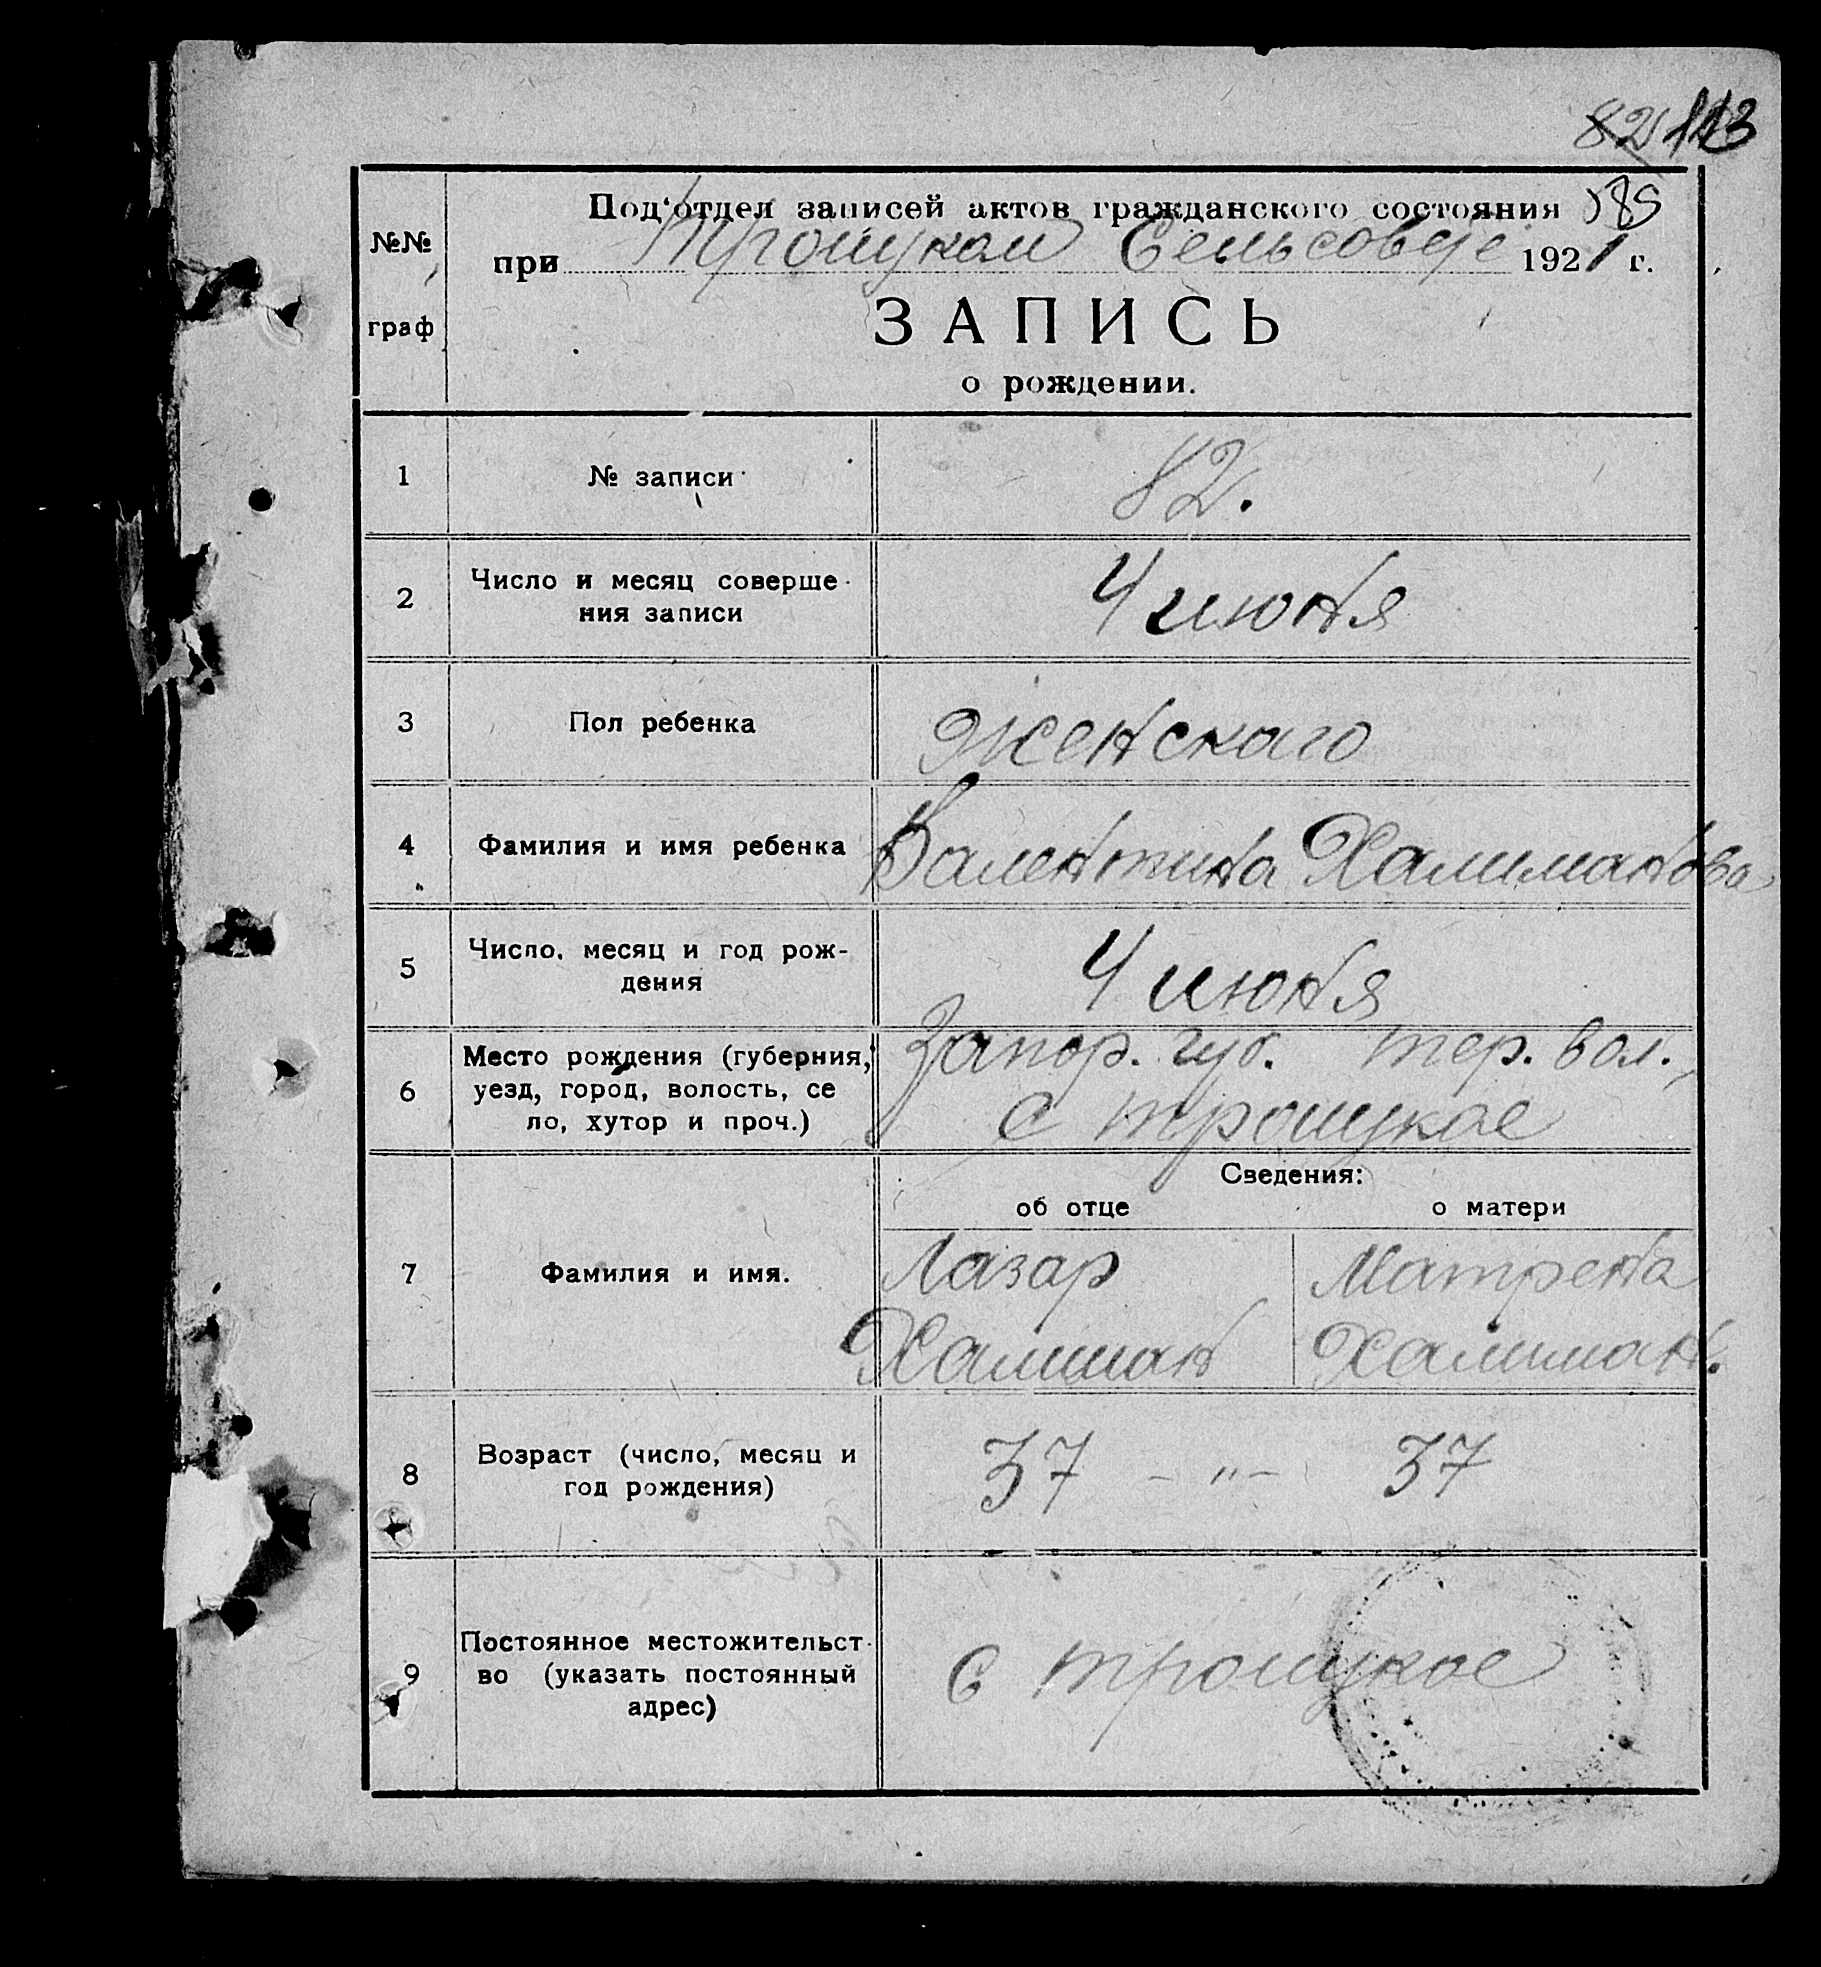 82 113
185
Под'отдел записей актов гражданского состояния
№№ при Троицком Сельсовете 1921 г.
граф
ЗАПИСЬ
о рождении.
1 № записи 82.
2 Число и месяц соверше-
ния записи 4 июня
3 Пол ребенка женскаго
4 Фамилия и имя ребенка Валентина Халиманова
5 Число, месяц и год рож-
дения 4 июня
6 Место рождения (губерния, Запор. губ. тер. вол.,
уезд, город, волость, се
ло, хутор и проч.) с троицкое
Сведения:
об отце о матери
7 Фамилия и имя. Лазар Матрена
Халиман Халиман.
8 Возраст (число, месяц и
год рождения) 37 - "- 37
9 Постоянное местожительст-
во (указать постоянный
адрес) с троицкое